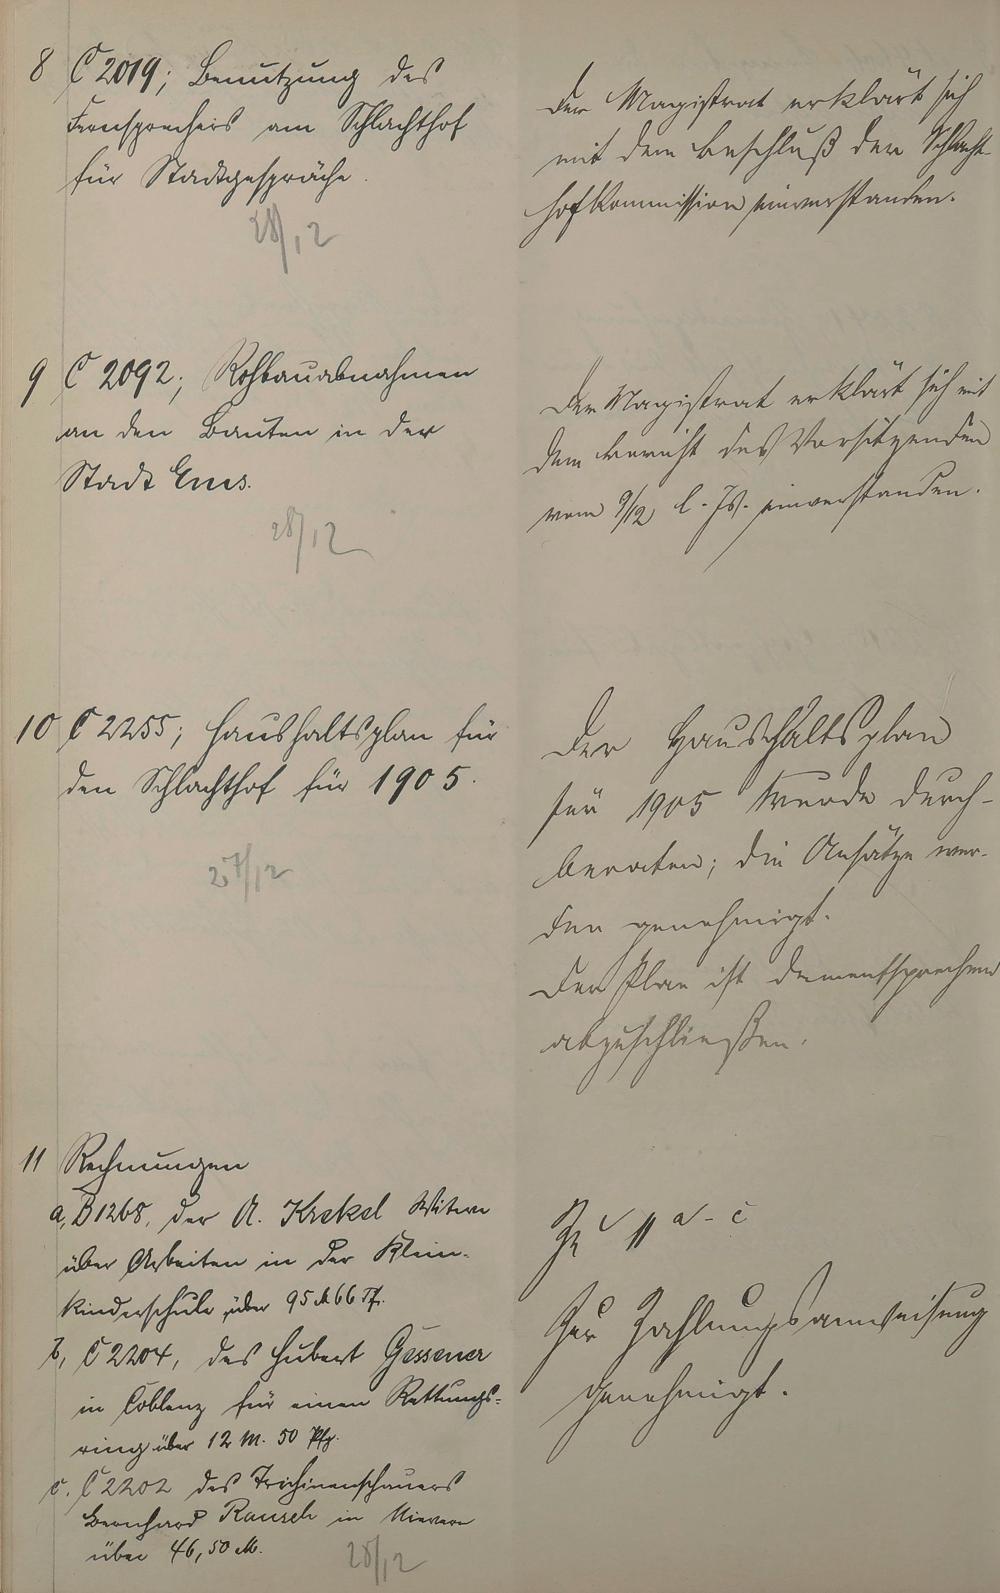 8 C 2019; Benutzung des
Fernsprechers am Schlachthof
für Stadtgespräche.
28/12
Der Magistrat erklärt sich
mit dem Beschluß der Schlacht-
hofkommission einverstanden.
9 C 2092; Rohbauabnahmen
an den Bauten in der
Stadt Ems.
28/12
Der Magistrat erklärt sich mit
dem Bericht des Vorsitzenden
vom 9/12 l. Js. einverstanden.
10 C 2255; Haushaltsplan für
den Schlachthof für 1905.
27/12
Der Haushaltsplan
für 1905 wurde durch-
beraten; die Ansätze wer-
den genehmigt.
Der Plan ist dementsprechend
abzuschließen.
11 Rechnungen
a, B 1268, der A. Krekel Witwe
über Arbeiten in der Klein-
kinderschule über 95 M 66 Pf.
b, C 2204, des Hubert Gessener
in Coblenz für einen Rettungs-
ring über 12 M. 50 Pfg.
c. C 2202 des Trichinenschauers
Bernhard Rausch in Nievern
über 46,50 M.
28/12
Zu 11 a - c
Zur Zahlungsanweisung
genehmigt.